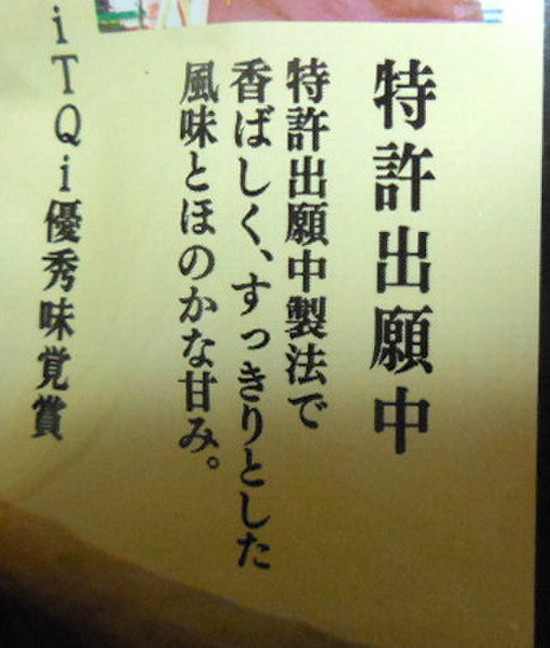 特許出願中
特許出願中製法で
香ばしく、すっきりとした
風味とほのかな甘み。
iTQi優秀味覚賞